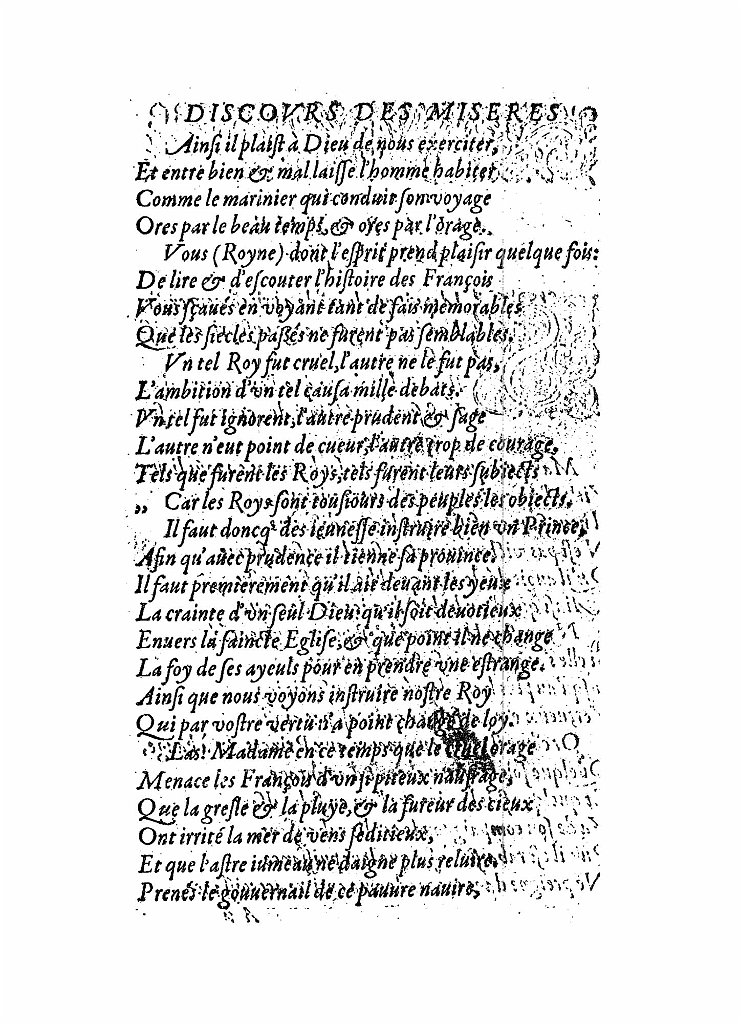 DISCOVRS DES MISERES
Ainſi il plaiſt à Dieu de nous exerciter,
Et entre bien & mal laiſſe l'homme habiter,
Comme le marinier qui conduit ſon voyage
Ores par le beau temps, & ores par l'orage.
Vous (Royne) dont l'eſprit prend plaiſir quelque fois:
De lire & d'eſcouter l'hiſtoire des François
Vous ſçaués en voyant tant de fais memorables
Que les ſiecles paſſés ne furent pas ſemblables.
Vn tel Roy fut cruel, l'autre ne le fut pas,
L'ambition d'vn tel cauſa mille debats.
Vn tel fut ignorent, l'autre prudent & ſage
L'autre n'eut point de cueur, l'autre trop de courage,
Tels que furent les Roys, tels furent leurs ſubiects
„ Car les Roys ſont touſiours des peuples les obiects.
Il faut doncq' des ieuneſſe inſtruire bien vn Prince,
Afin qu'auec prudence il tienne ſa prouince.
Il faut premierement qu'il ait deuant les yeux
La crainte d'vn ſeul Dieu: qu'il ſoit deuotieux
Enuers la ſaincte Egliſe, & que point il ne change
La foy de ſes ayeuls pour en prendre vne eſtrange.
Ainſi que nous voyons inſtruire noſtre Roy
Qui par voſtre vertu n'a point changé de loy.
Las! Madame en ce temps que le cruel orage
Menace les François d'vn ſi piteux naufrage,
Que la greſle & la pluye, & la fureur des cieux
Ont irrité la mer de vens ſeditieux,
Et que l'aſtre iumeau ne daigne plus reluire,
Prenés le gouuernail de ce pauure nauire,